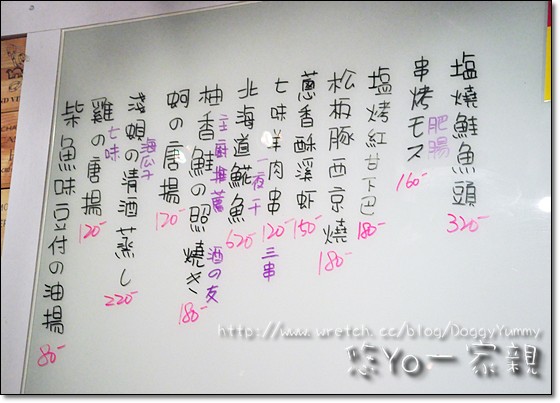 塩燒鮭魚頭 320-
串烤モス 肥腸 160-
塩烤紅甘下巴 180-
松板豚西京燒 180-
蔥香酥溪蝦 150-
七味羊肉串 120- 三串
北海道鯱魚 一夜干 620-
柚香鮭の照燒き 主厨推薦 酒の友 180-
蚵の唐揚 120-
淺蜆の清酒蒸し 海瓜子 220-
雞の唐揚 七味 120-
柴魚味豆付の油揚 80-
http://www.wretch.cc/blog/DoggyYummy
悠Yo一家親